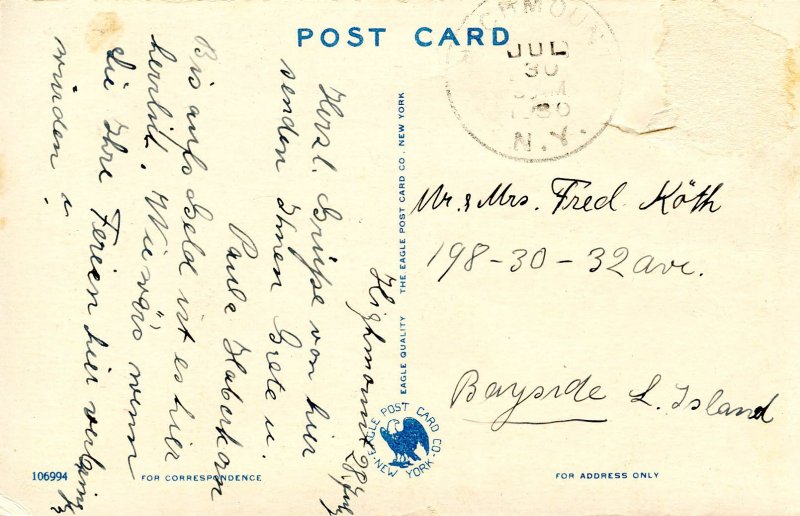 POST CARD
HIGHMOUNT
JUL
30
AM
1930
N.Y.
Highmount 28 July
Herzl. Grüße von hier
senden Ihnen Grete u.
Paula Haberkorn
Bis aufs Geld ist es hier
herrlich. Wie wärs wenn
Sie Ihre Ferien hier verbringen
würden?
EAGLE QUALITY THE EAGLE POST CARD CO. NEW YORK
EAGLE POST CARD CO.
NEW YORK
Mr. & Mrs. Fred Köth
198-30-32 ave.
Bayside L. Island
106994
FOR CORRESPONDENCE
FOR ADDRESS ONLY